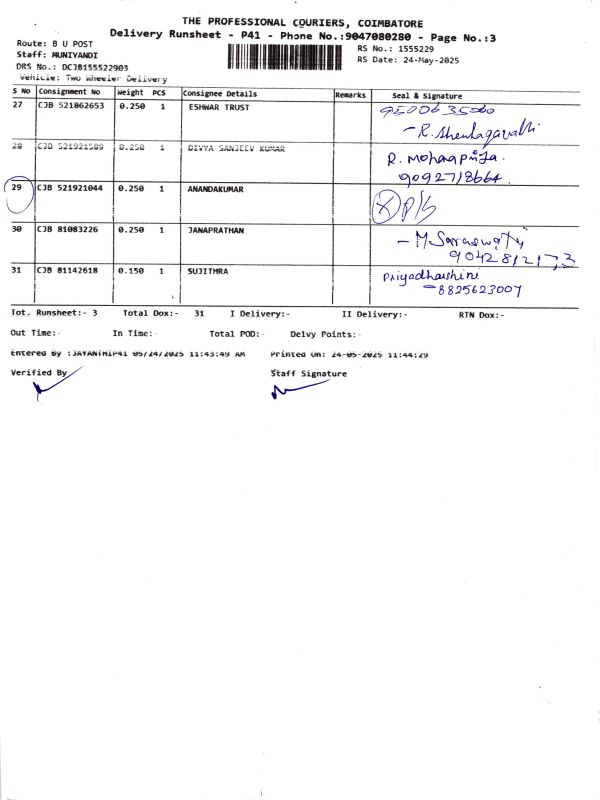 THE PROFESSIONAL COURIERS, COIMBATORE
Delivery Runsheet - P41 - Phone No.:9047080280 - Page No.:3
Route: B U POST
RS No.: 1555229
Staff: MUNIYANDI
RS Date: 24-May-2025
DRS No.: DCJB155522903
Vehicle: Two Wheeler Delivery
S No Consignment No Weight PCS Consignee Details Remarks Seal & Signature
27 CJB 521862653 0.250 1 ESHWAR TRUST
- R. Shenbagavalli
28 CJB 521921589 0.250 1 DIVYA SANJEEV KUMAR R. Mohanapriya.
9092718664.
29 CJB 521921044 0.250 1 ANANDAKUMAR
P/S
30 CJB 81083226 0.250 1 JANAPRATHAN - M Saraswathi
31 CJB 81142618 0.150 1 SUJITHRA Priyadharshini
- 8825623007
Tot. Runsheet:- 3 Total Dox:- 31 I Delivery:- II Delivery:- RTN Dox:-
Out Time:- In Time:- Total POD:- Delvy Points:-
Entered By :JAYANTHIP41 05/24/2025 11:43:49 AM Printed On: 24-05-2025 11:44:29
Verified By Staff Signature